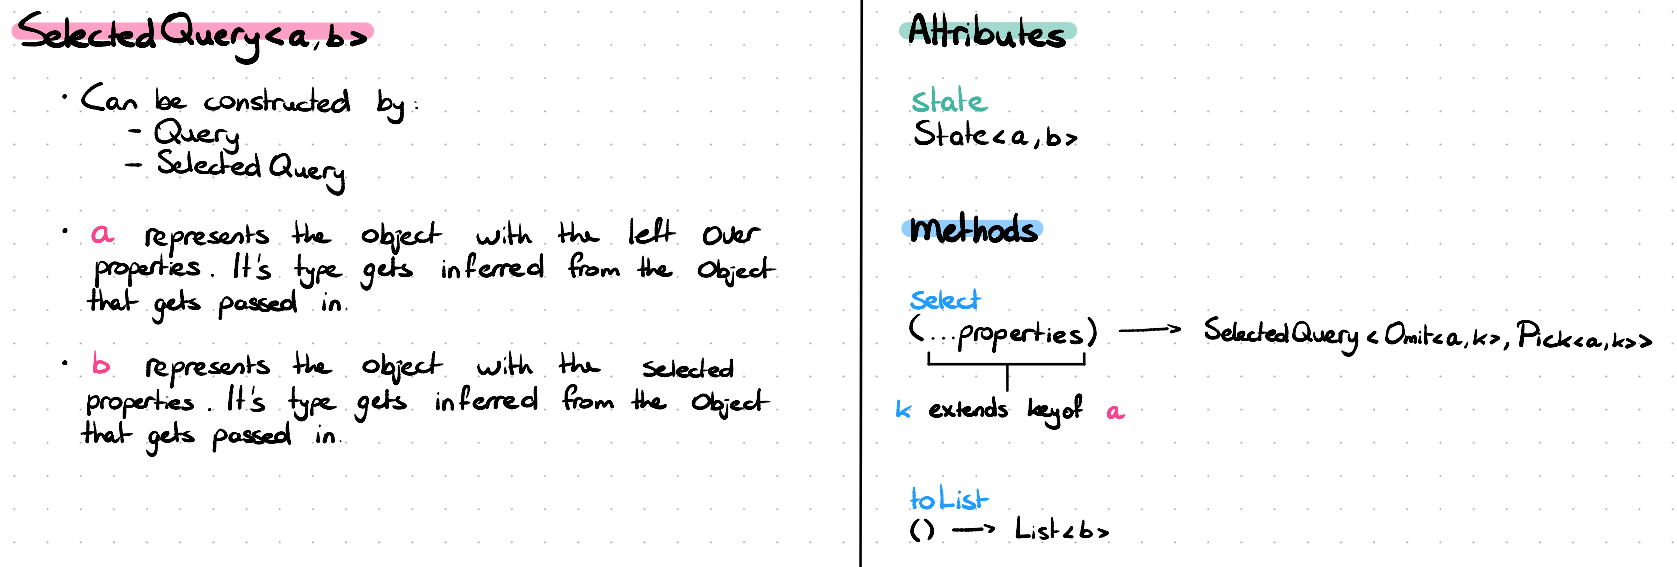 SelectedQuery<a,b>
· Can be constructed by:
- Query
- SelectedQuery
· a represents the object with the left over
properties. It's type gets inferred from the Object
that gets passed in.
· b represents the object with the selected
properties. It's type gets inferred from the Object
that gets passed in.
Attributes
state
State<a,b>
methods
select
(...properties) → SelectedQuery<Omit<a,k>, Pick<a,k>>
k extends keyof a
toList
() → List<b>